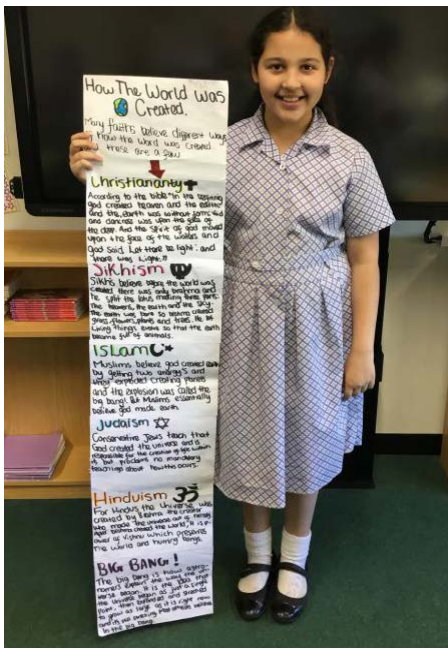 How The World Was
Created.
Many faiths believe different ways
how the world was created
these are a few
Christiananty
According to the bible "In the beginning
god created heaven and the earth
and the earth was without form and
and darkness was upon the face of
the deep. And the spirit of god moved
upon the face of the waters and
god said Let there be light, and
there was Light."
Sikhism
Sikhs believe before the world was
created there was only brahma and
he split the lotus making three parts:
the heavens, the earth and the sky.
the earth was bare so brahma created
grass, flowers, plants and trees. He let
living things evolve so that the earth
became full of animals.
Islam
Muslims believe god created earth
by getting two energy's and
they exploded creating planets
and the explosion was called the
big bang! But Muslims essentially
believe god made earth
Judaism
Conservative Jews teach that
God created the universe and is
responsible for the creation of life within
it but proclaims no mandatory
teachings about how this occurs.
Hinduism
For hindus the universe was
created by the creator
who made the universe out of himself
After brahma created the world, it is the
power of vishnu which preserves
the world and human beings.
BIG BANG!
The big bang is how astro-
nomers explain the way the uni-
verse began. It is the idea that
the universe began as just a single
point, then expanded and stretched
to grow as large as it is right now
and it's still stretching
in the big bang